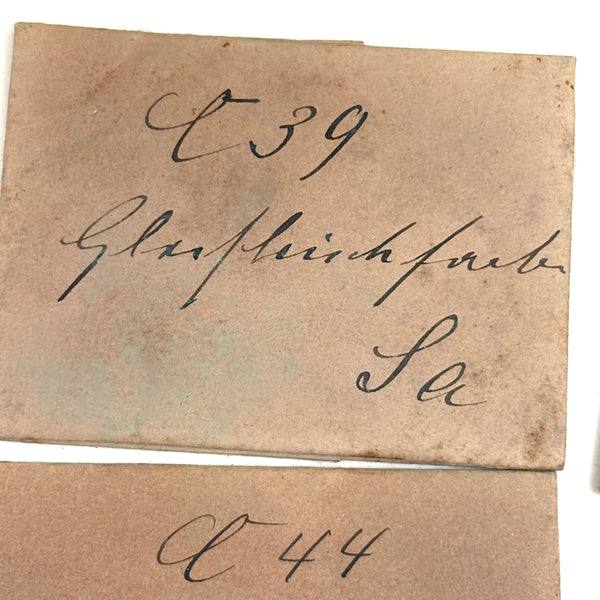 C 39
Glasfleischfarbe
Sa
C 44